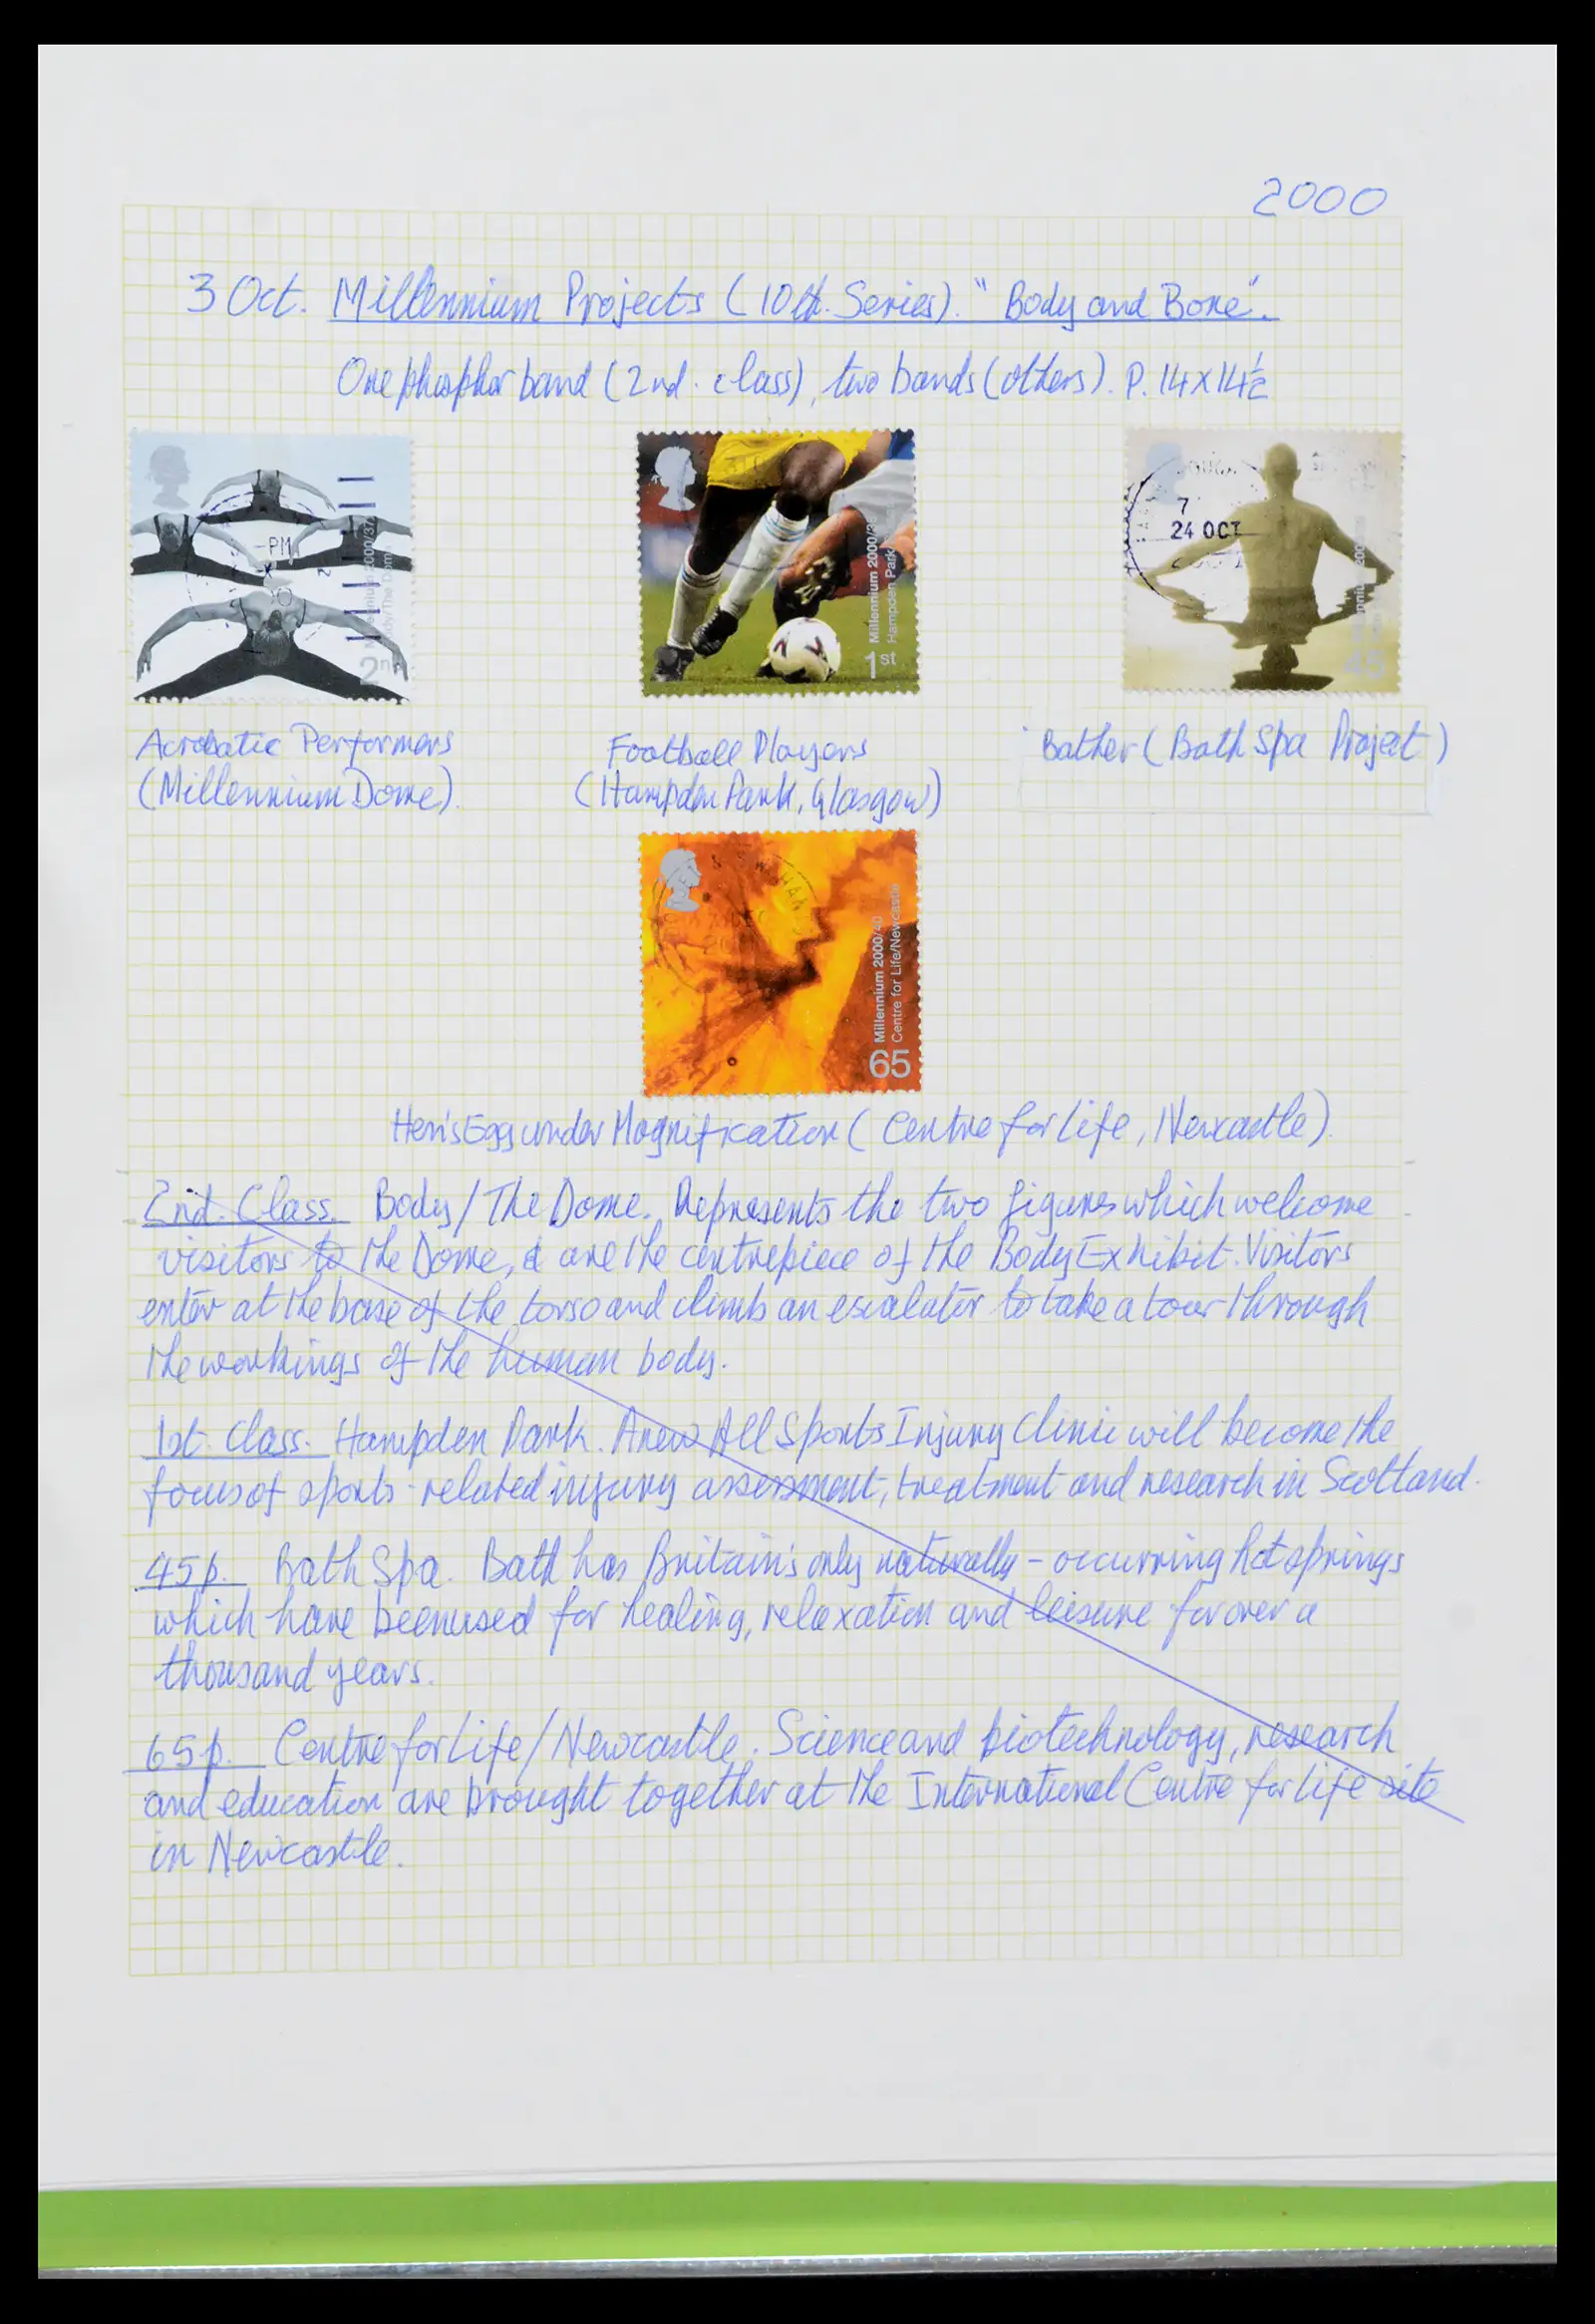 2000
3 Oct. Millennium Projects (10th. Series). "Body and Bone".
One phosphor band (2nd. class), two bands (others). P. 14 x 14½
PM
2nd
Millennium 2000/38
Hampden Park
1st
7
24 OCT
Acrobatic Performers
(Millennium Dome).
Football Players
(Hampden Park, Glasgow)
Bather (Bath Spa Project)
Millennium 2000/40
Centre for Life/Newcastle
65
Hen's Egg under Magnification (Centre for Life, Newcastle).
2nd. Class. Body/The Dome. Represents the two figures which welcome
visitors to the Dome, & are the centrepiece of the Body Exhibit. Visitors
enter at the base of the torso and climb an escalator to take a tour through
the workings of the human body.
1st. Class. Hampden Park. A new All Sports Injury Clinic will become the
focus of sports-related injury assessment, treatment and research in Scotland.
45p. Bath Spa. Bath has Britain's only naturally-occurring hot springs
which have been used for healing, relaxation and leisure for over a
thousand years.
65p. Centre for Life/Newcastle. Science and biotechnology, research
and education are brought together at the International Centre for Life site
in Newcastle.